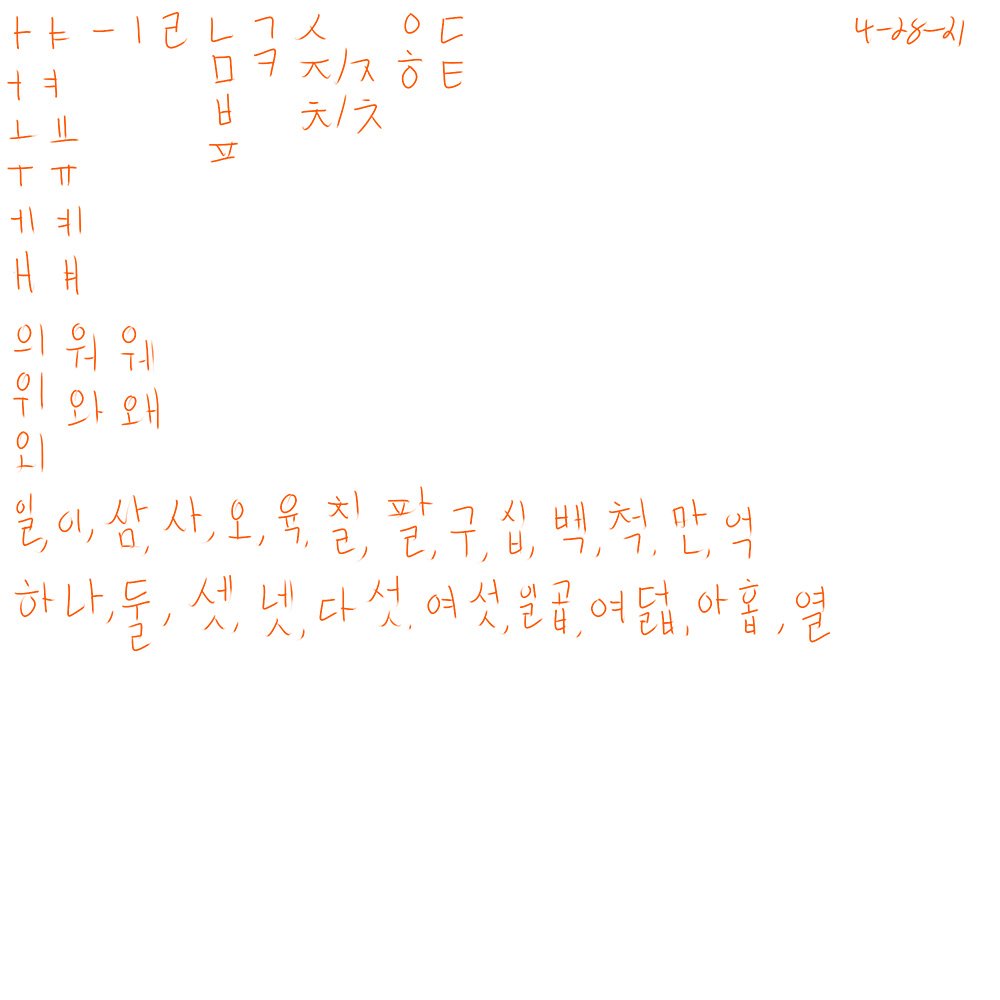 ㅏ ㅑ ㅡ ㅣ ㄹ ㄴ ㄱ ㅅ ㅇ ㄷ 4-28-21
ㅓ ㅕ ㅁ ㅋ ㅈ/ㅈ ㅎ ㅌ
ㅗ ㅛ ㅂ ㅊ/ㅊ
ㅜ ㅠ ㅍ
ㅔ ㅖ
ㅐ ㅒ
의 워 웨
위 와 왜
외
일, 이, 삼, 사, 오, 육, 칠, 팔, 구, 십, 백, 척, 만, 억
하나, 둘, 셋, 넷, 다섯, 여섯, 일곱, 여덟, 아홉, 열